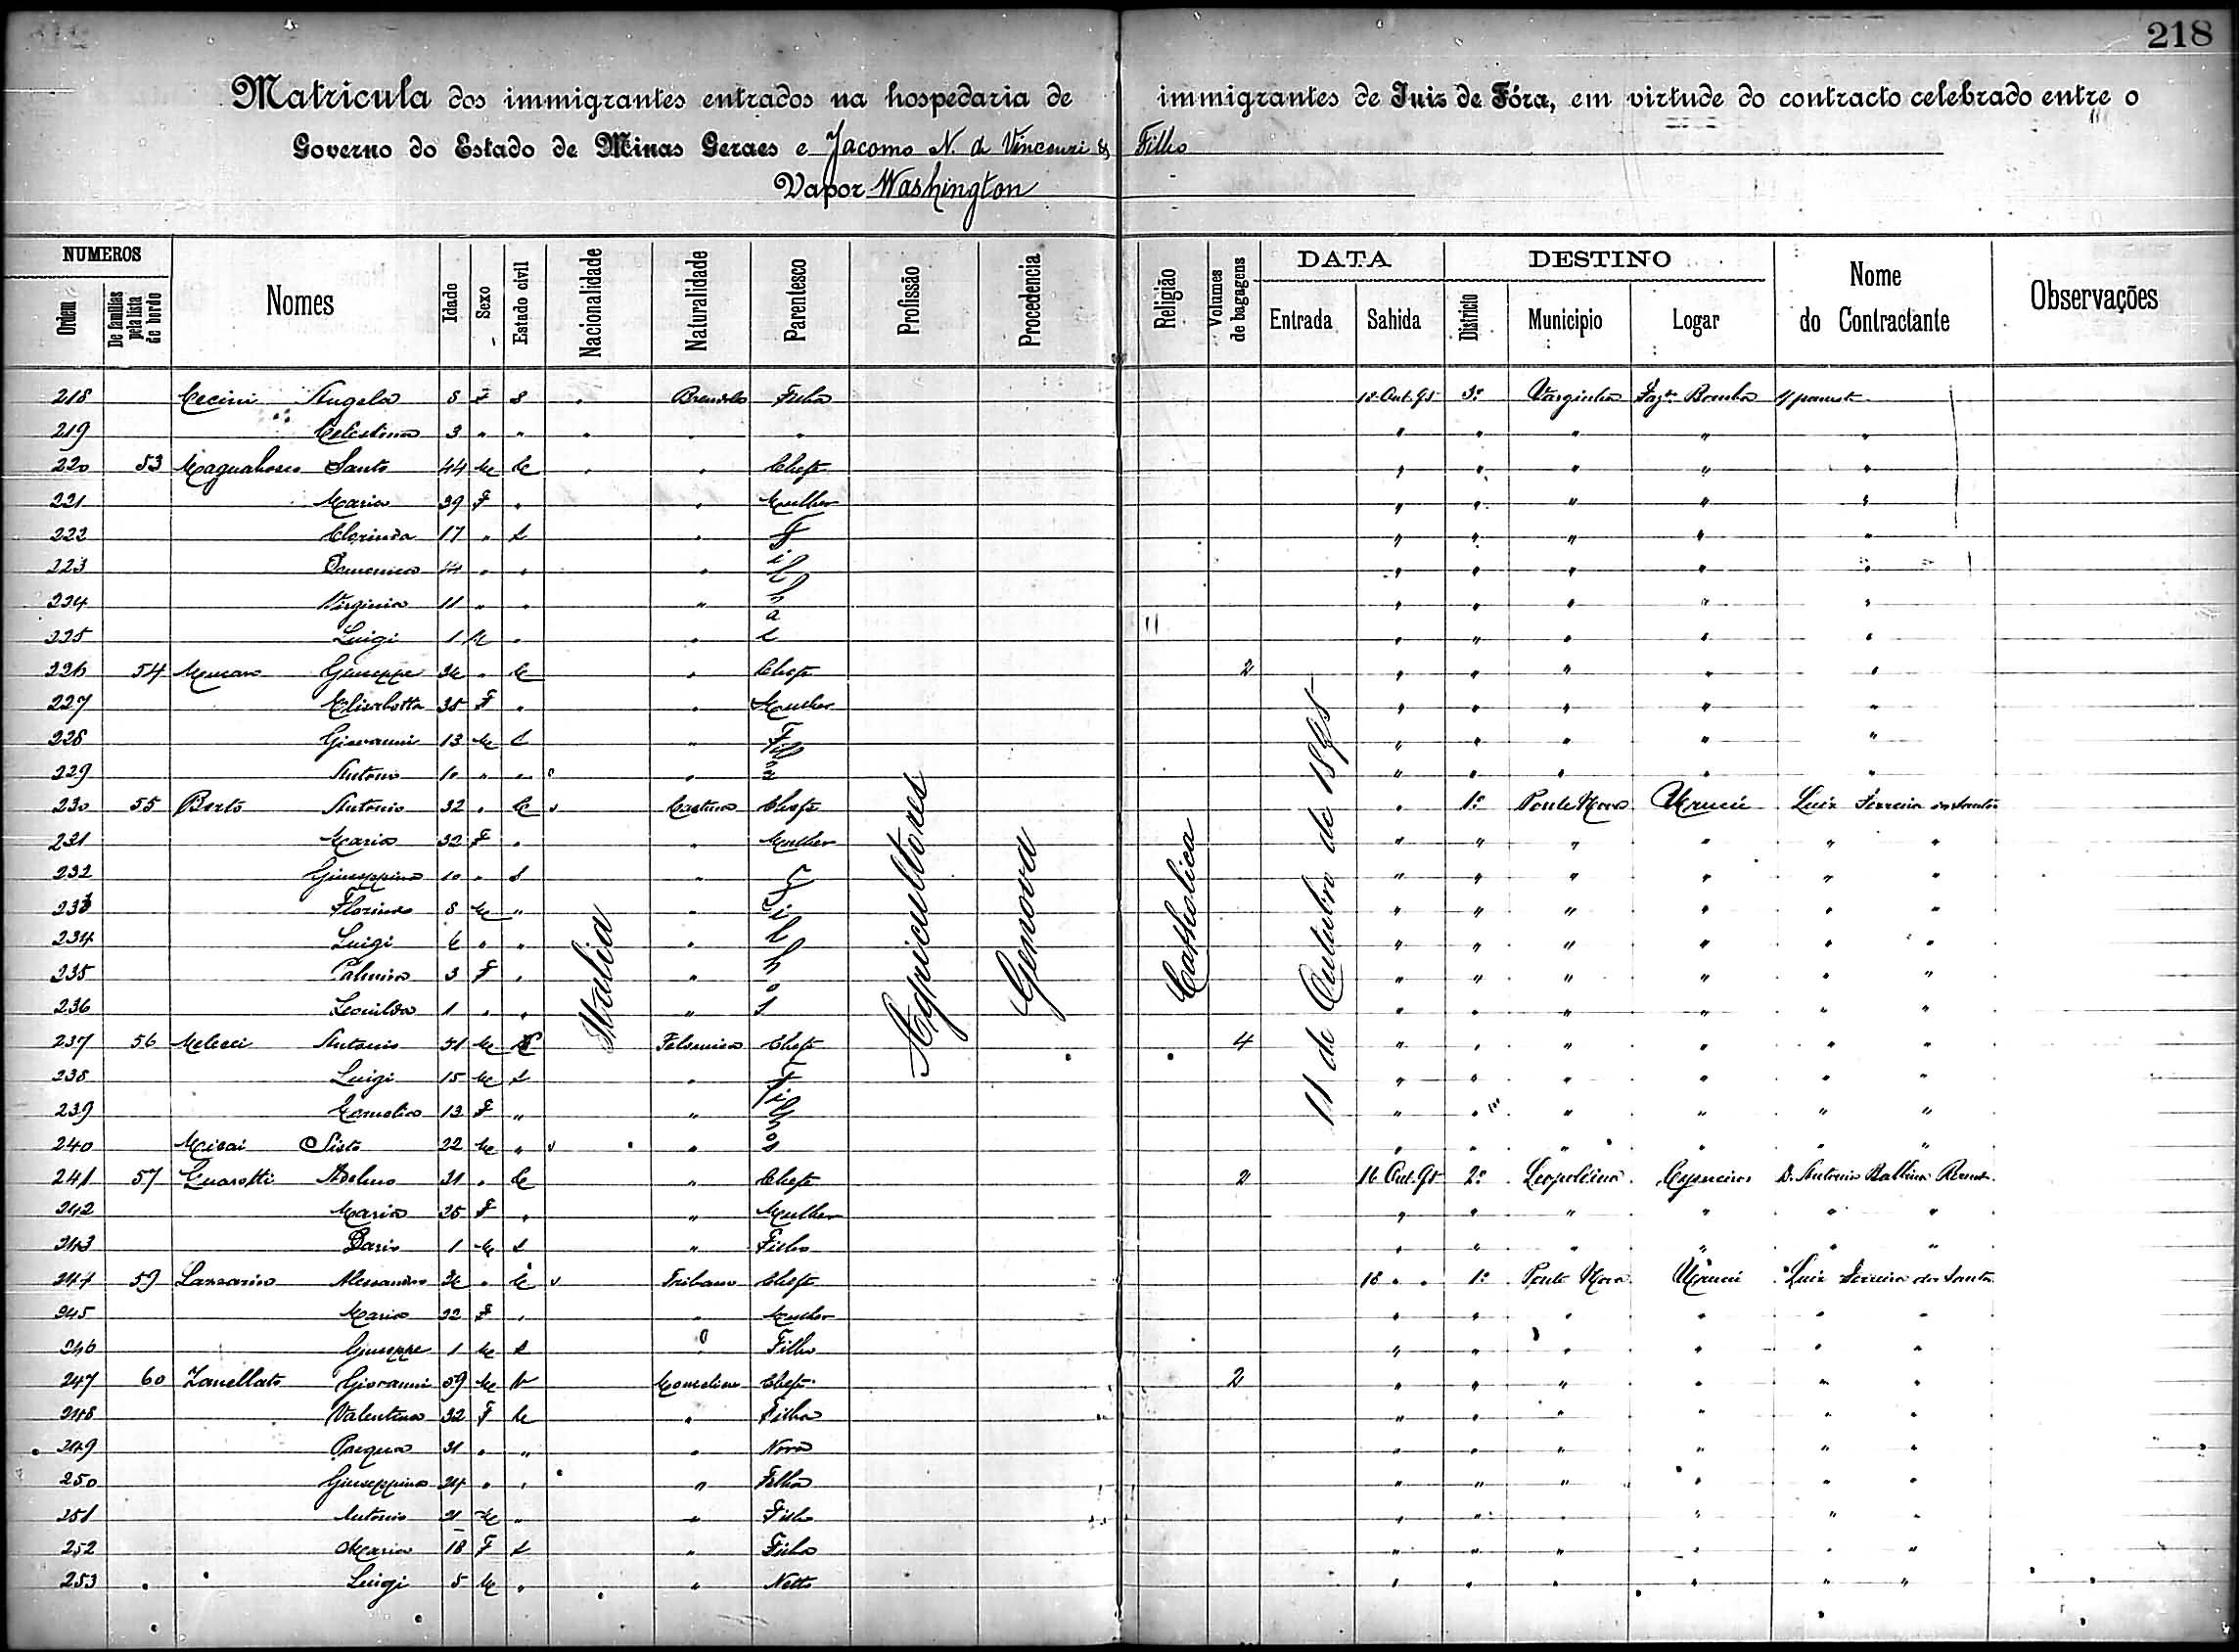 218
Matricula dos immigrantes entrados na hospedaria de immigrantes de Juiz de Fóra, em virtude do contracto celebrado entre o
Governo do Estado de Minas Geraes e Jacomo N. de Vincenzi & Filho
Vapor Washington
NUMEROS Nomes Idade Sexo Estado civil Nacionalidade Naturalidade Parentesco Profissão Procedencia Religião Volumes de bagagens DATA DESTINO Nome do Contractante Observações
Ordem De familias pela lista de bordo Entrada Sahida Districto Municipio Logar
Italia Agricultores Genova Catholica 11 de Outubro de 1895
218 Angela 8 F S " Filha 18 Out. 95 3º Varginha Fazª Bomba
219 Celestina 3 " " " " " " " " " " "
220 53 Santo 44 M C " " Chefe " " " " "
221 Maria 39 F " " Mulher " " " " "
222 Clorinda 17 " S " F " " " " "
223 Domenica 14 " " " il " " " " "
224 Virginia 11 " " " h " " " " "
225 Luigi 1 M " " a " " " " "
226 54 Giuseppe 36 " C " Chefe 2 " " " " "
227 Elisabetta 35 F " " Mulher " " " " "
228 Giovanni 13 M S " Filh " " " " "
229 Antonio 10 " " " " " " " "
230 55 Berto Antonio 32 " C Chefe " 1º Ponte Nova Luiz Ferreira dos Santos
231 Maria 32 F " " Mulher " " " " " "
232 Giuseppina 10 " S " F " " " " " "
233 Florindo 8 M " " i " " " " " "
234 Luigi 6 " " " l " " " " " "
235 Palmira 3 F " " h " " " " " "
236 Leonilda 1 " " " os " " " " " "
237 56 Melecci Antonio 51 M Felonica Chefe 4 " " " " " "
238 Luigi 15 M S " F " " " " " "
239 13 F " " ilh " " " " " "
240 Sisto 22 M " " os " " " " " "
241 57 Guarotti Adelmo 31 " C " Chefe 2 16 Out. 95 2º Leopoldina Cysneiros D. Antonio
242 Maria 25 F " " Mulher " " " " " "
243 Dario 1 M S " Filho " " " " " "
244 59 Lazzarino Alessandro 36 " C Tribano Chefe 18 " " 1º Ponte Nova Luiz Ferreira dos Santos
245 Maria 32 F " " Mulher " " " " " "
246 Giuseppe 1 M S " Filho " " " " " "
247 60 Zanellato Giovanni 59 M V Monselice Chefe 2 " " " " " "
248 Valentina 32 F C " Filha " " " " " "
249 Pasqua 31 " " " Nora " " " " " "
250 Giuseppina 24 " " " Filha " " " " " "
251 Antonio 21 M " " Filho " " " " " "
252 Maria 18 F S " Filha " " " " " "
253 Luigi 5 M " " Netto " " " " " "